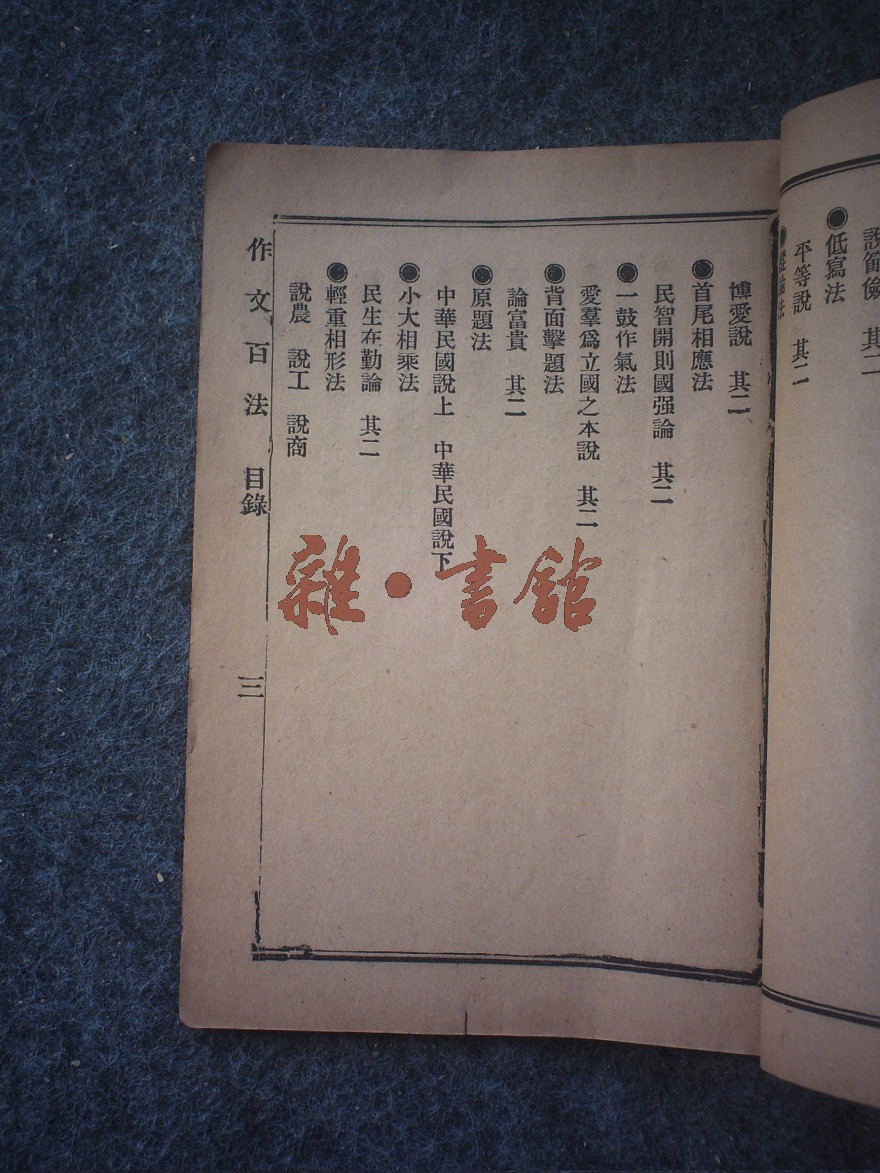 說節儉 其二
●低寫法
平等說 其二
博愛說 其二
●首尾相應法
民智開則國强論 其二
●一鼓作氣法
愛羣爲立國之本說 其二
●背面擊題法
論富貴 其二
●原題法
中華民國說上 中華民國說下
●小大相乘法
民生在勤論 其二
●輕重相形法
說農 說工 說商
作文百法 目錄 三
雜·書館